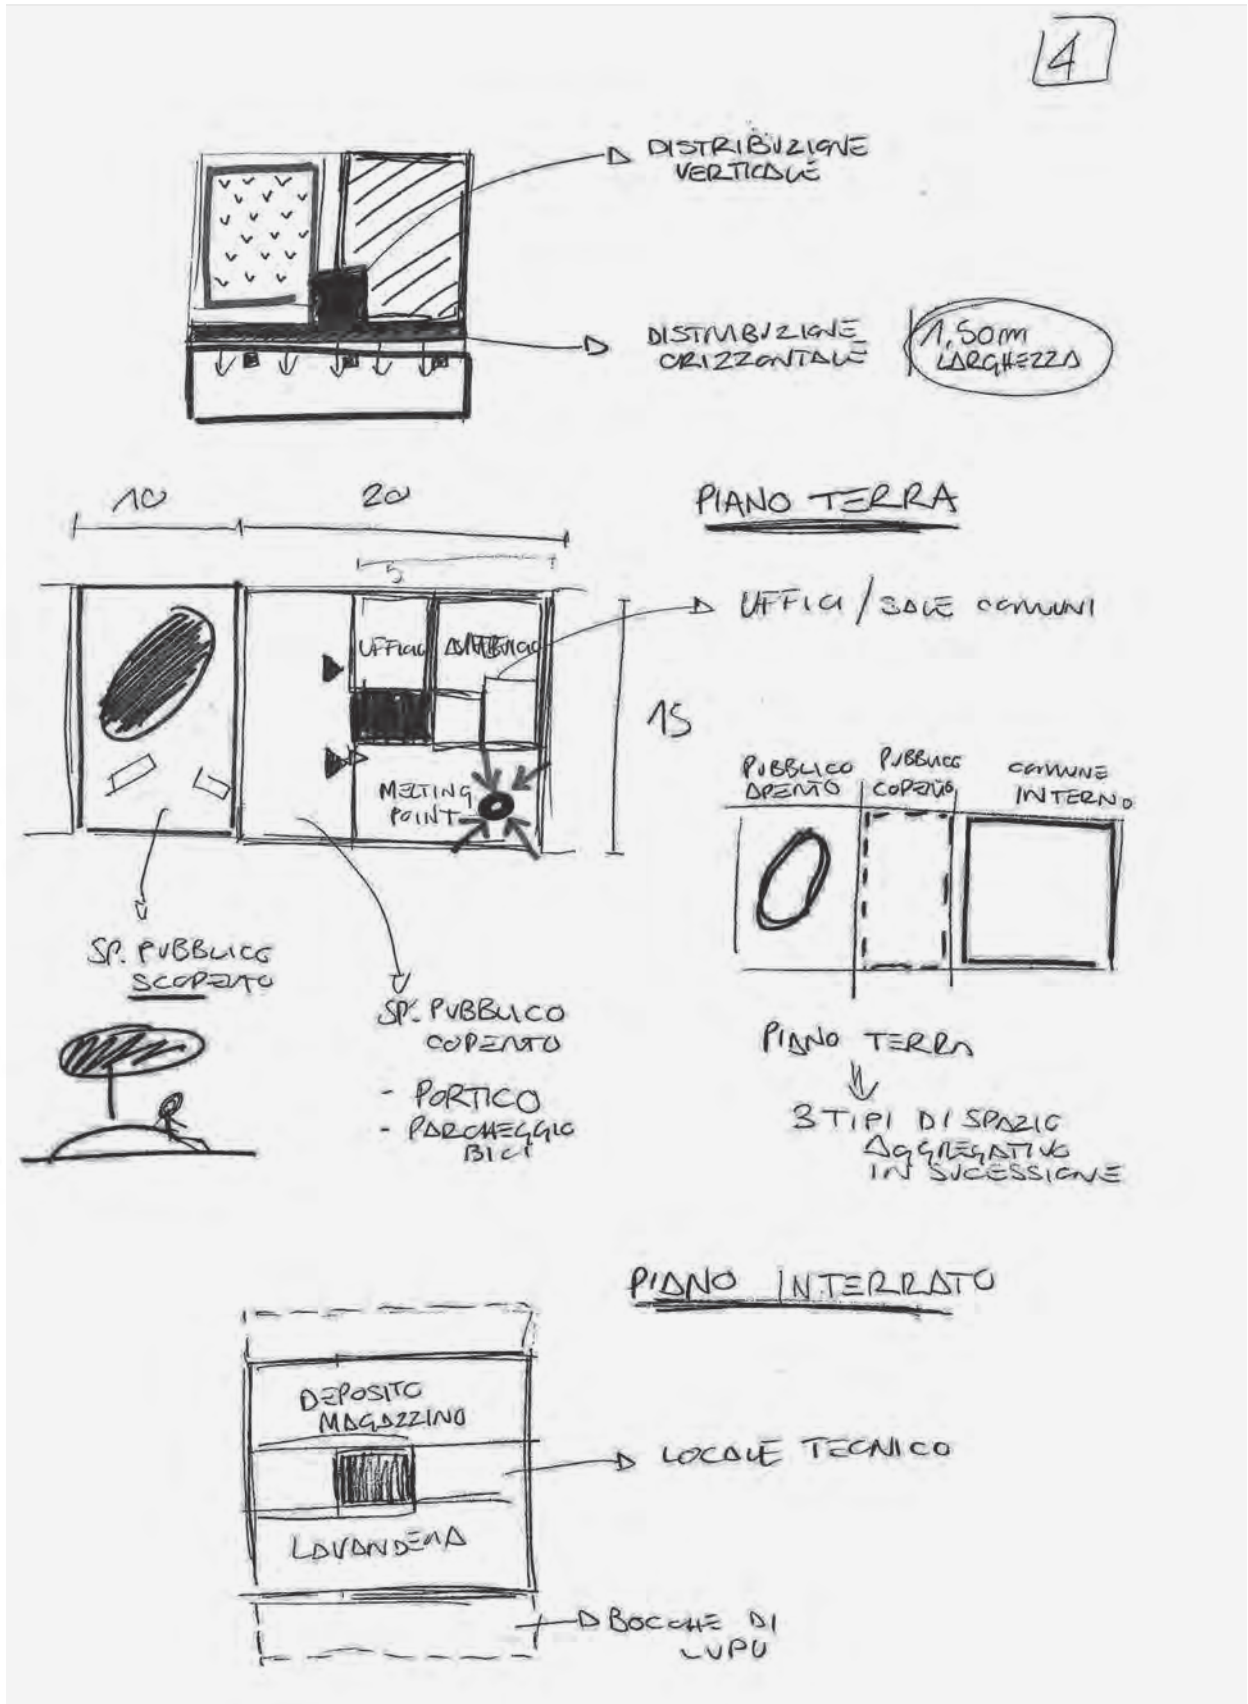 4
DISTRIBUZIONE
VERTICALE
DISTRIBUZIONE
ORIZZONTALE
1,50m
LARGHEZZA
PIANO TERRA
10
20
5
UFFICI
UFFICI / SALE COMUNI
15
MELTING
POINT
PUBBLICO
APERTO
PUBBLICO
COPERTO
COMUNE
INTERNO
SP. PUBBLICO
SCOPERTO
SP. PUBBLICO
COPERTO
- PORTICO
- PARCHEGGIO
BICI
PIANO TERRA
3 TIPI DI SPAZIO
AGGREGATIVO
IN SUCESSIONE
PIANO INTERRATO
DEPOSITO
MAGAZZINO
LOCALE TECNICO
LAVANDERIA
BOCCHE DI
LUPO